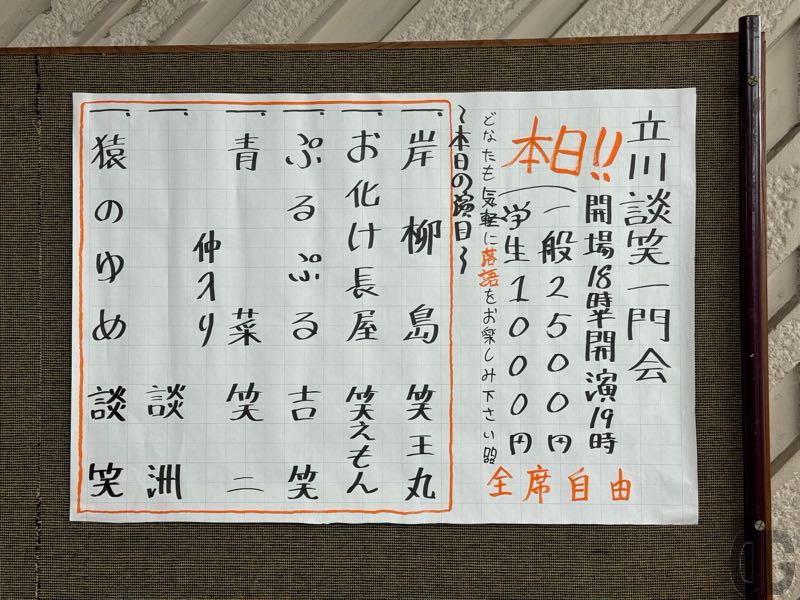 立川談笑一門会
本日!!
開場18時半開演19時
一般2500円
学生1000円
全席自由
どなたも気軽に落語をお楽しみ下さい
~本日の演目~
一、岸柳島 笑王丸
一、お化け長屋 笑えもん
一、ぷるぷる 吉笑
一、青菜 笑二
仲入り
一、 談洲
一、猿のゆめ 談笑